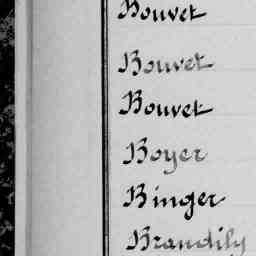 Bouvet
Bouvet
Bouvet
Boyer
Binger
Brandily